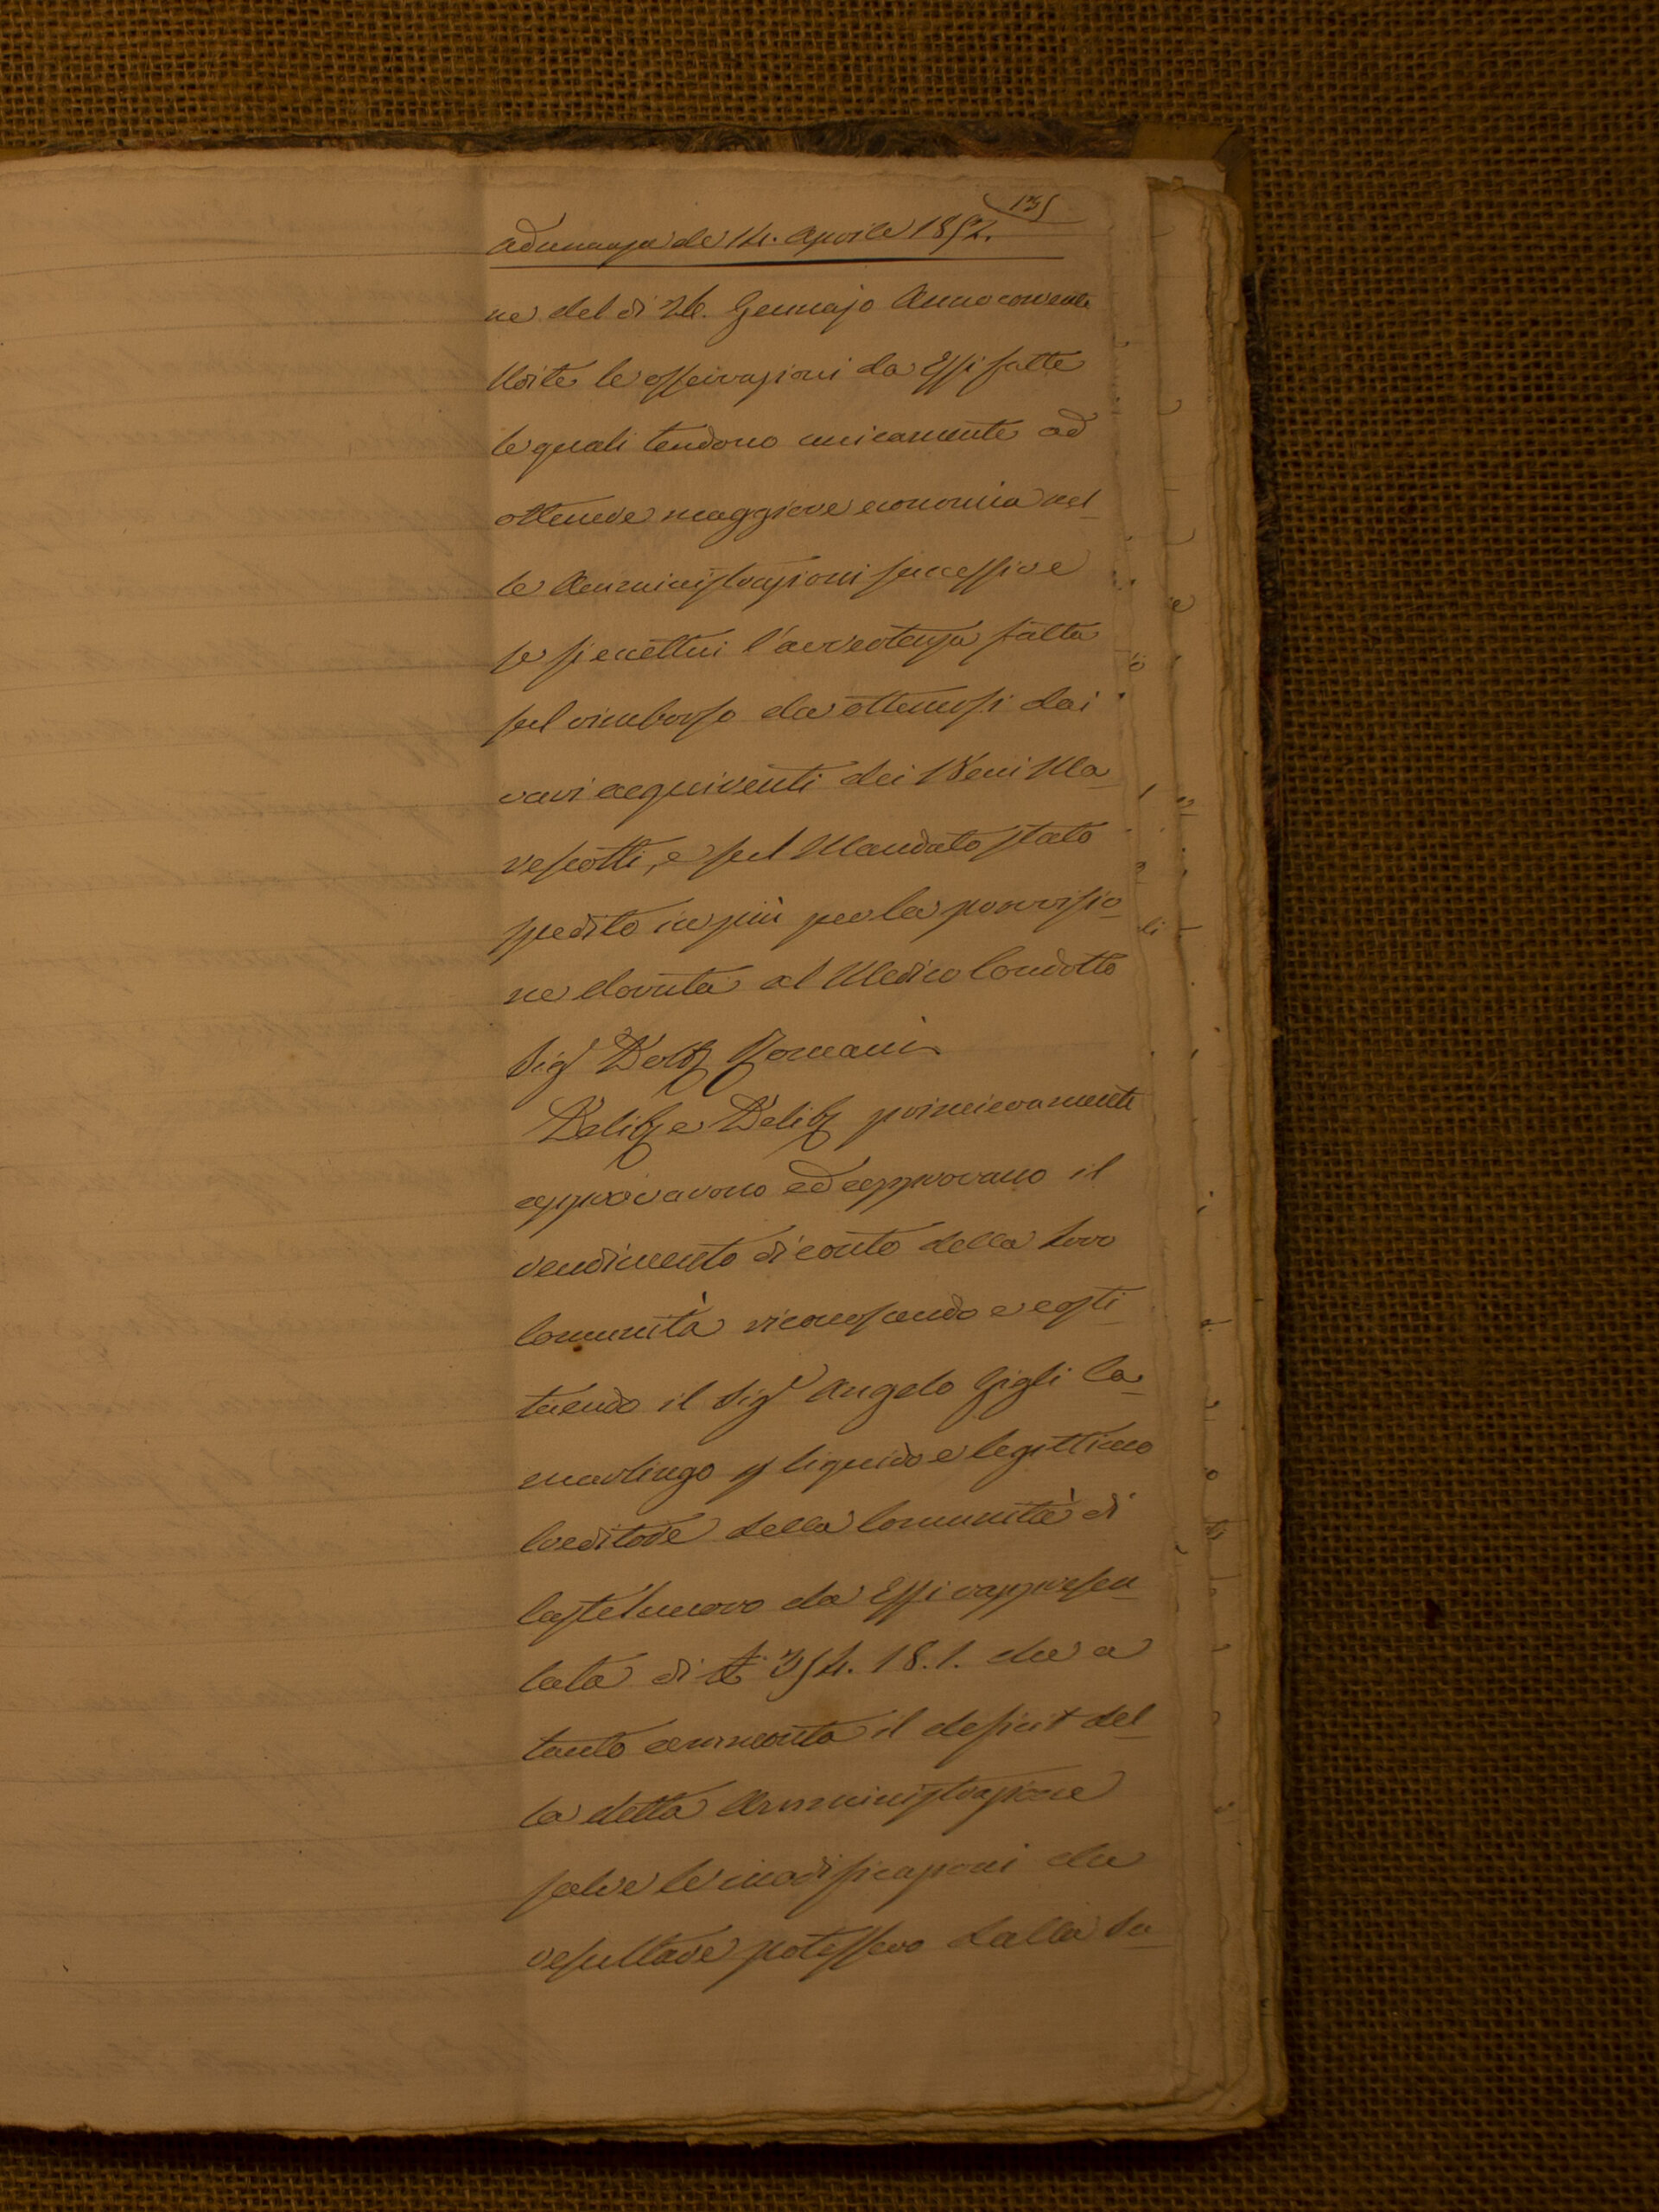 135
Adunanza de' 14. Aprile 1852.
ne del dì 26. Gennajo Anno corrente
Udite le osservazioni da Essi fatte
le quali tendono unicamente ad
ottenere maggiore economia nel-
le Amministrazioni successive
se si eccettui l'avvertenza fatta
sul rimborso da ottenersi dai
varj acquirenti dei Beni Ma-
rescotti, e sul Mandato stato
spedito in più per la provvisio-
ne dovuta al Medico Condotto
Sigr Dott Romani
Delib e Delib primieramente
approvarono ed approvano il
rendimento di conto della loro
Comunità riconoscendo e costi-
tuendo il Sigr Angelo Gigli Ca-
marlingo p liquido e legittimo
Creditore della Comunità di
Castelnuovo da Essi rappresen-
tata di £ 354. 18. 1. che a
tanto ammonta il deficit del-
la detta Amministrazione
salve le modificazioni che
resultare potessero dalla Su-